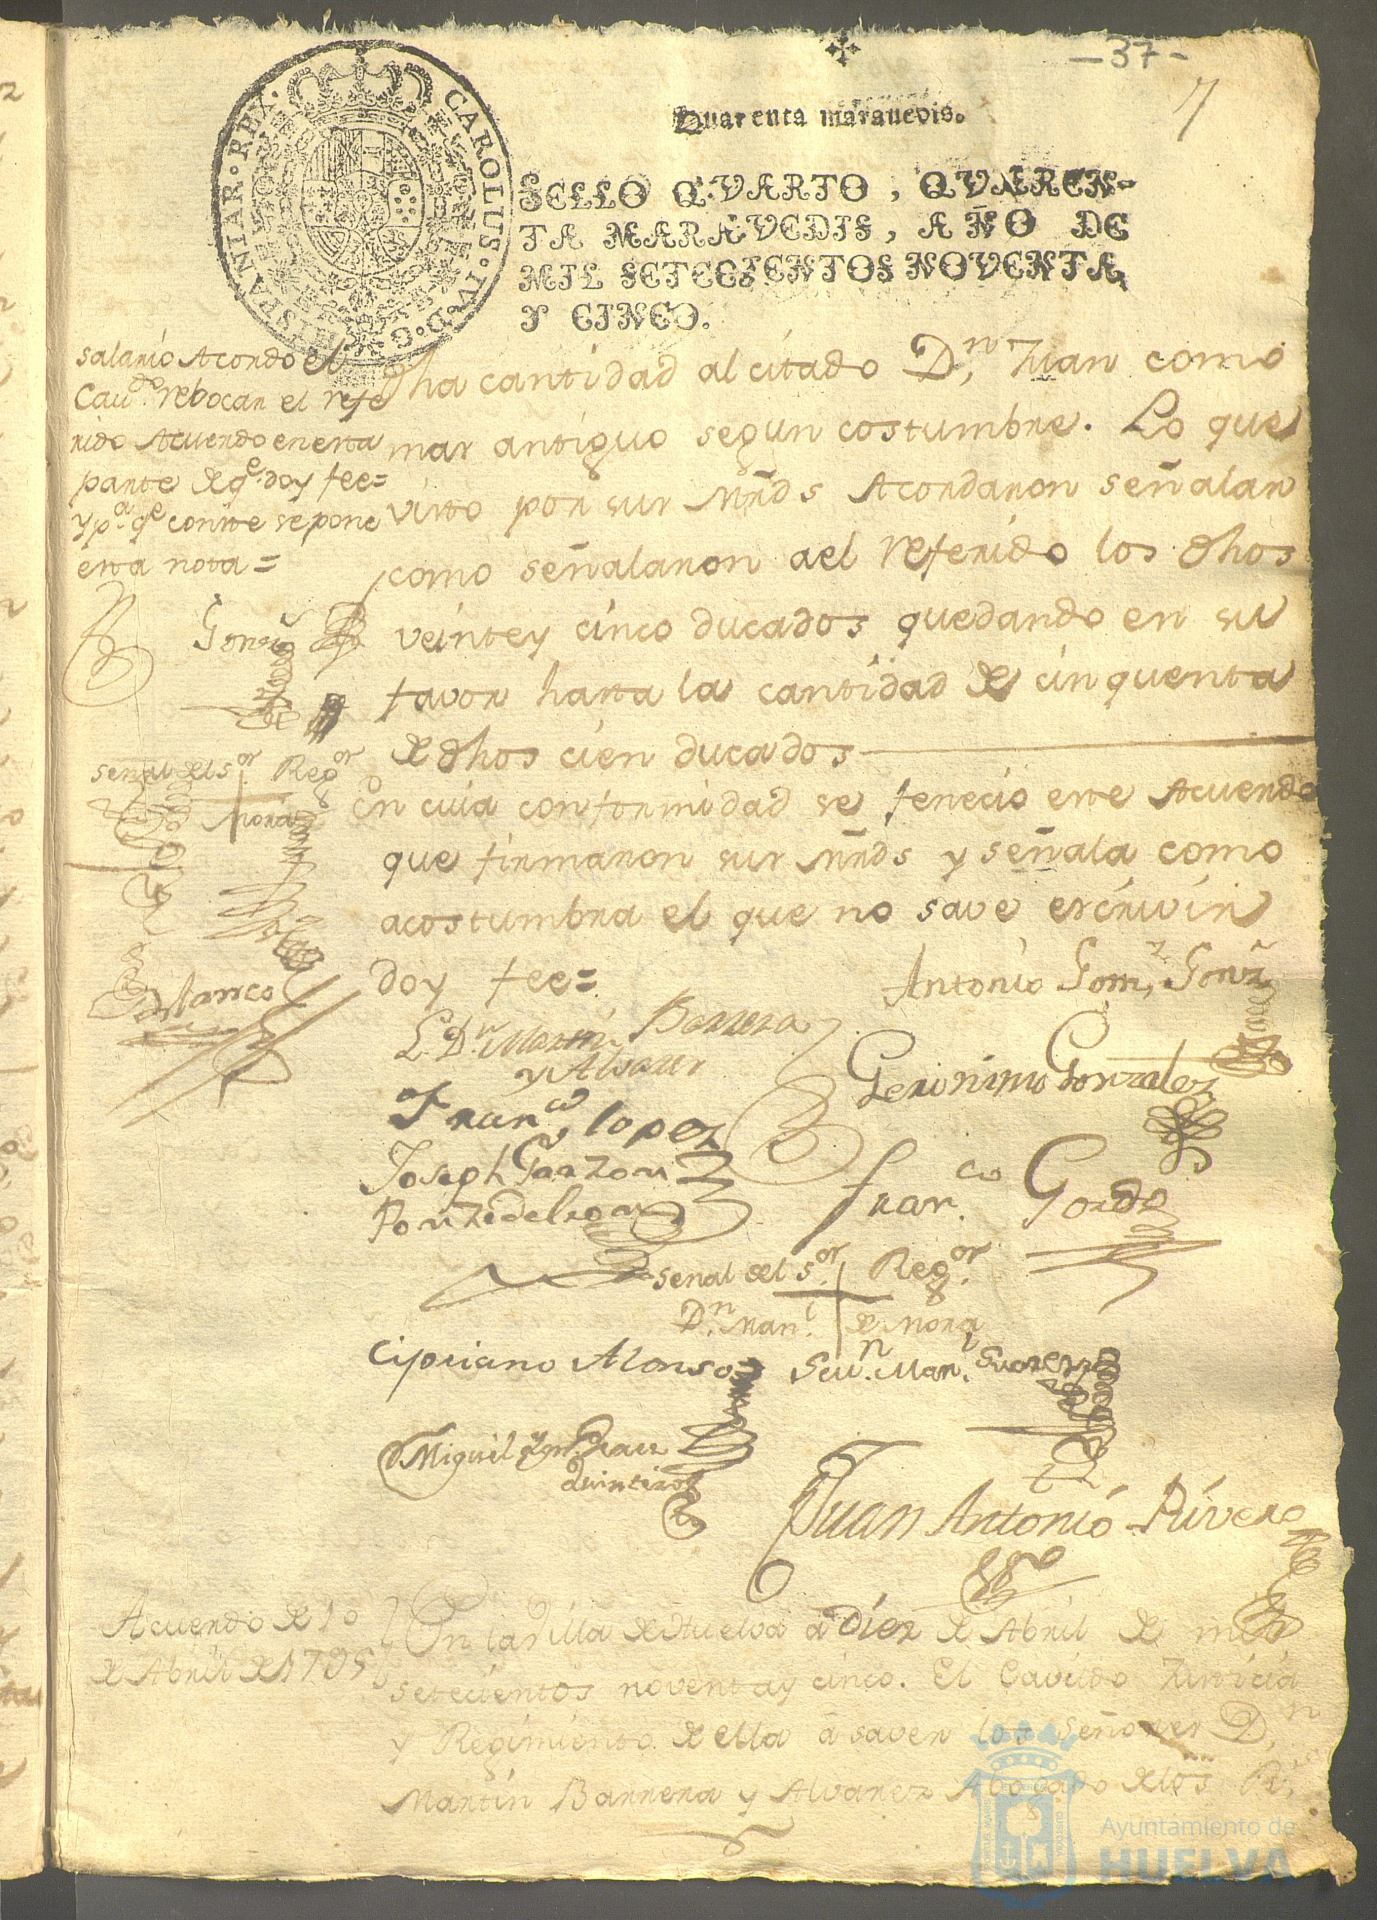 - 37 -
7
Quarenta maravedis.
HISPANIAR · REX · CAROLUS · IV · D · G
SELLO QVARTO, QVAREN-
TA MARAVEDIS, AÑO DE
MIL SETECIENTOS NOVENTA
Y CINCO.
salario Acordo el
Cavdo. rebocar el refe
rido Acuerdo en esta
parte de qe. doy fee=
y pa. qe conste se pone
esta nota=
Gonz
señal del sor. Regor
Mora
Blanco
dha cantidad al citado Dn. Juan como
mas antiguo segun costumbre. Lo que
visto por sus Mrds Acordaron señalar
como señalaron a el referido los dhos
veinte y cinco ducados quedando en su
favor hasta la cantidad de cinquenta
de dhos cien ducados
En cuia conformidad se fenecio este Acuerdo
que firmaron sus Mrds y señala como
acostumbra el que no save escrivir
doy fee=
Antonio Gomz. Gonz
L. Dn. Martin Barrera
y Alvarez
Geronimo Gonzalez
Franco. lopez
Joseph Garzon
Ponze de leon
Franco. Gordo
señal del Sor. Regor.
Dn. Manl. de Mora
Cipriano Alonso
Manl. Suarez
Miguel
Quintero
Juan Antonio Rivero
Acuerdo de 10
de Abril de 1795
En la Villa de Huelva a Diez de Abril de mil
setecientos noventa y cinco. El Cavildo Justicia
y Regimiento de ella a saver los Señores Dn
Martin Barrera y Alvarez Abogado de los Rs.
Ayuntamiento de
HUELVA